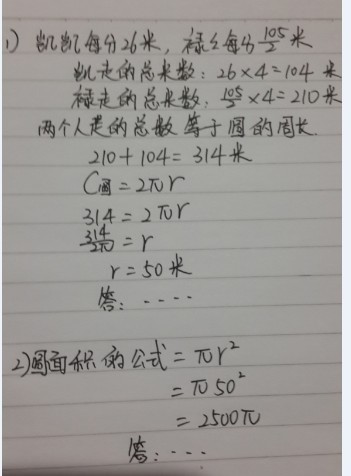 1) 凯凯每分26米, 禄禄每分105/2米
凯走的总米数: 26×4=104米
禄走的总米数: 105/2×4=210米
两个人走的总数等于圆的周长.
210+104=314米
C圆=2πr
314=2πr
314/2π=r
r=50米
答: ····
2)圆面积的公式=πr²
=π50²
=2500π
答: ····